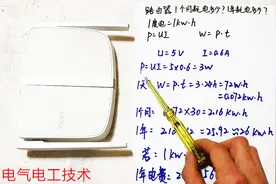 路由器1个月耗电多少?1年耗电多少?
1度电=1kw·h
P=UI W=p·t
U=5V I=0.6A
P=UI=5×0.6=3W
1天 W=p·t=3·24h=72w·h
=0.072kw·h
1个月: 072×30=2.16kw·h
1年: 2.16 12=25.92≈26kw·h
若: 1kw
1年电费:
电气电工技术